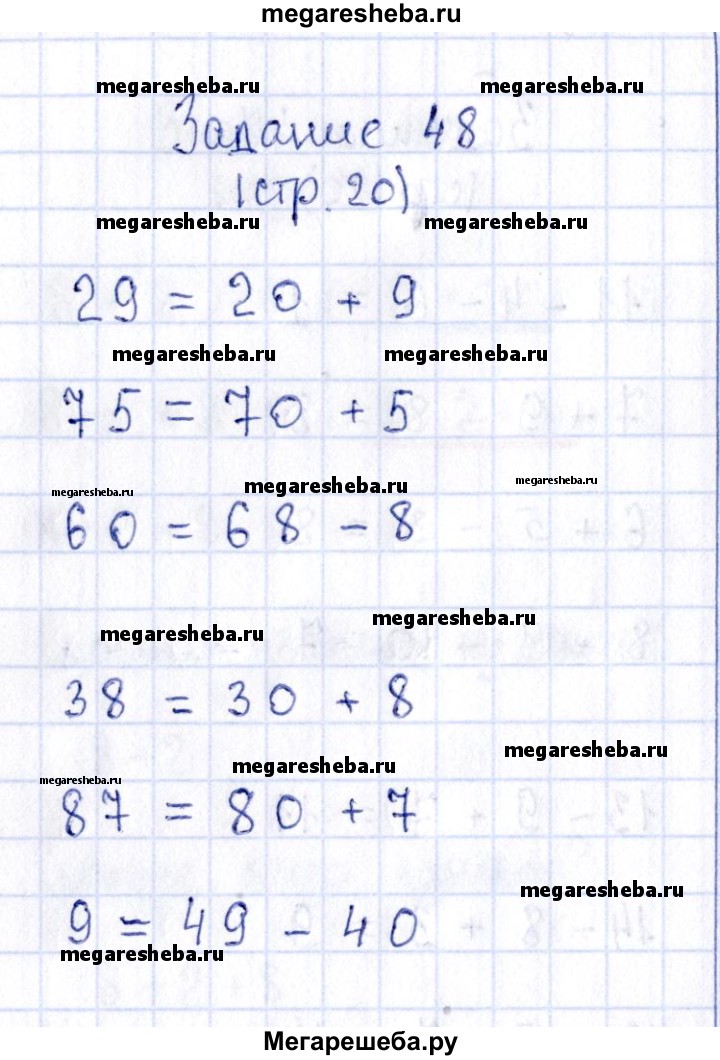 megaresheba.ru
megaresheba.ru megaresheba.ru
Задание 48
(стр. 20)
megaresheba.ru megaresheba.ru
29 = 20 + 9
megaresheba.ru megaresheba.ru
75 = 70 + 5
megaresheba.ru megaresheba.ru megaresheba.ru
60 = 68 - 8
megaresheba.ru megaresheba.ru
38 = 30 + 8
megaresheba.ru megaresheba.ru megaresheba.ru
87 = 80 + 7
megaresheba.ru
9 = 49 - 40
megaresheba.ru
Мегарешеба.ру